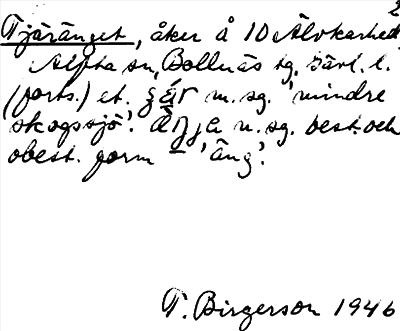 2
Tjäränget, åker å 10 Älvkarhed
Alfta sn, Bollnäs tg. Gävl. l.
(forts.) et. m. sg. 'mindre
skogssjö'. n. sg. best. och
obest. form – 'äng'.
T. Birgerson 1946